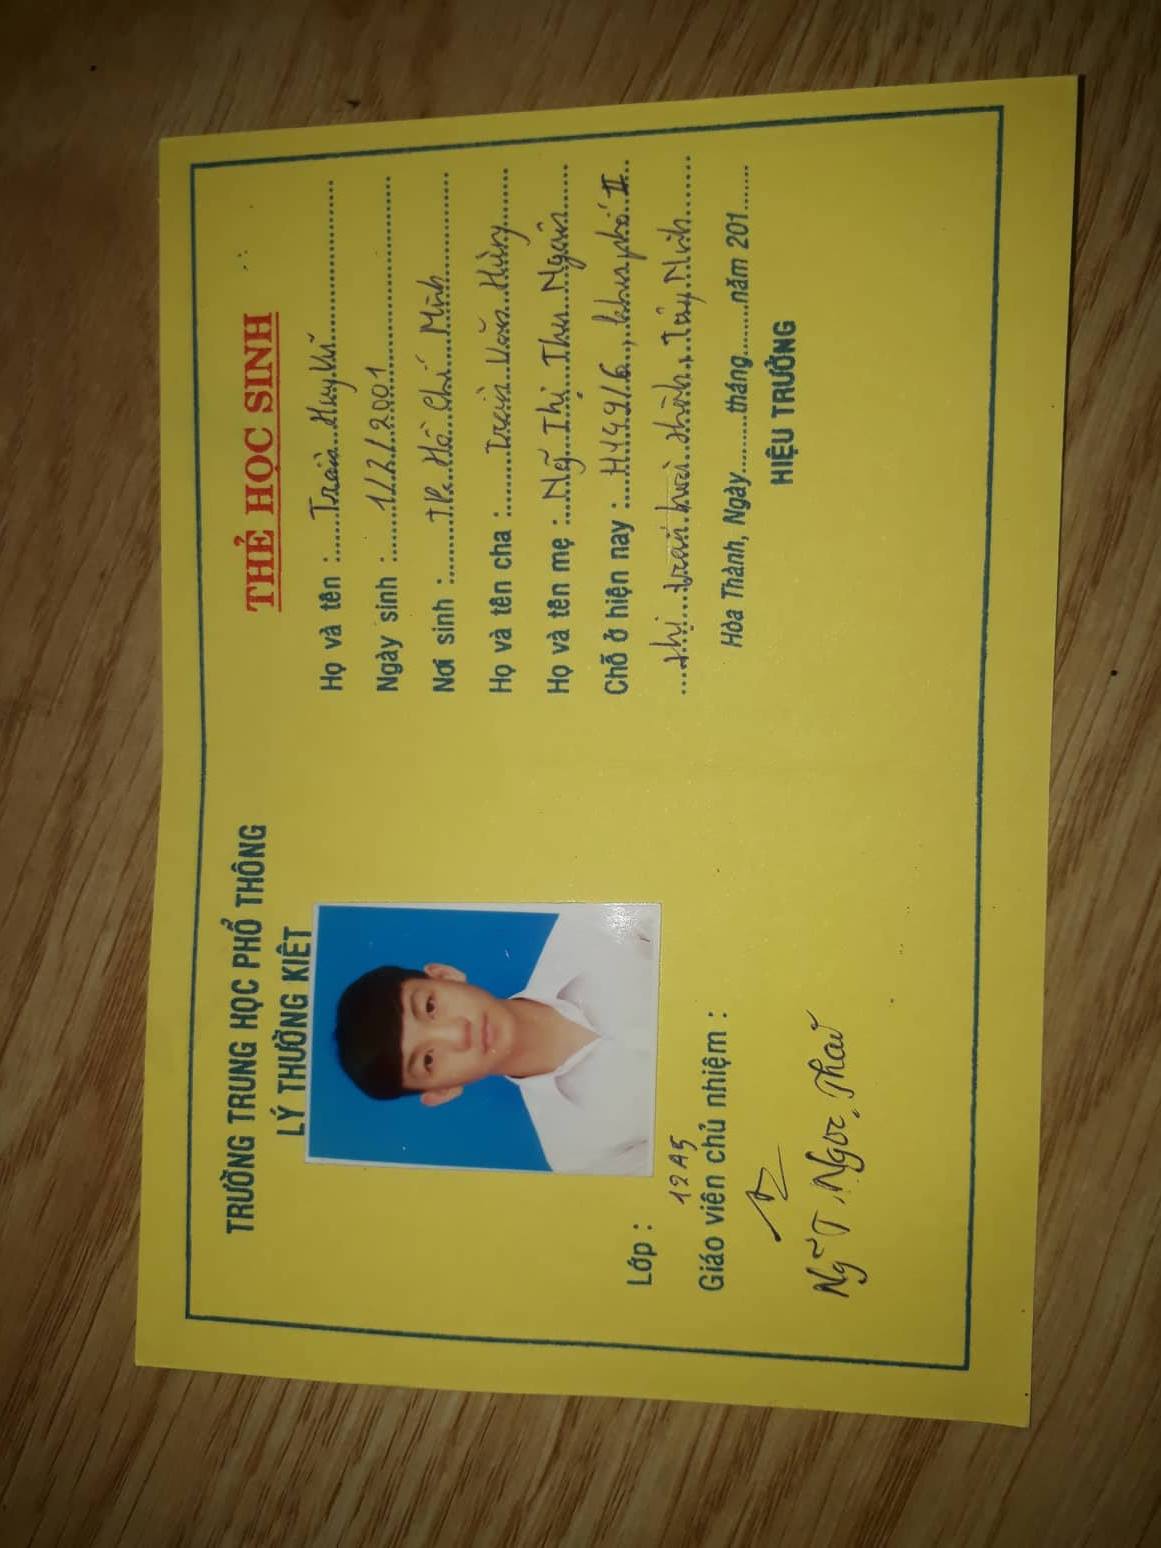 TRƯỜNG TRUNG HỌC PHỔ THÔNG
LÝ THƯỜNG KIỆT
Lớp : 12A5
Giáo viên chủ nhiệm :
Ngũ T Ngọc Thao
THẺ HỌC SINH
Họ và tên : Trần Huy Vĩ
Ngày sinh : 1/2/2001
Nơi sinh : TP. Hồ Chí Minh
Họ và tên cha : Trần Văn Hùng
Họ và tên mẹ : Ngũ Thị Thu Ngân
Chỗ ở hiện nay : H49/6, khu phố II
thị trấn hoà thành, Tây Ninh
Hòa Thành, Ngày........tháng........năm 201......
HIỆU TRƯỞNG